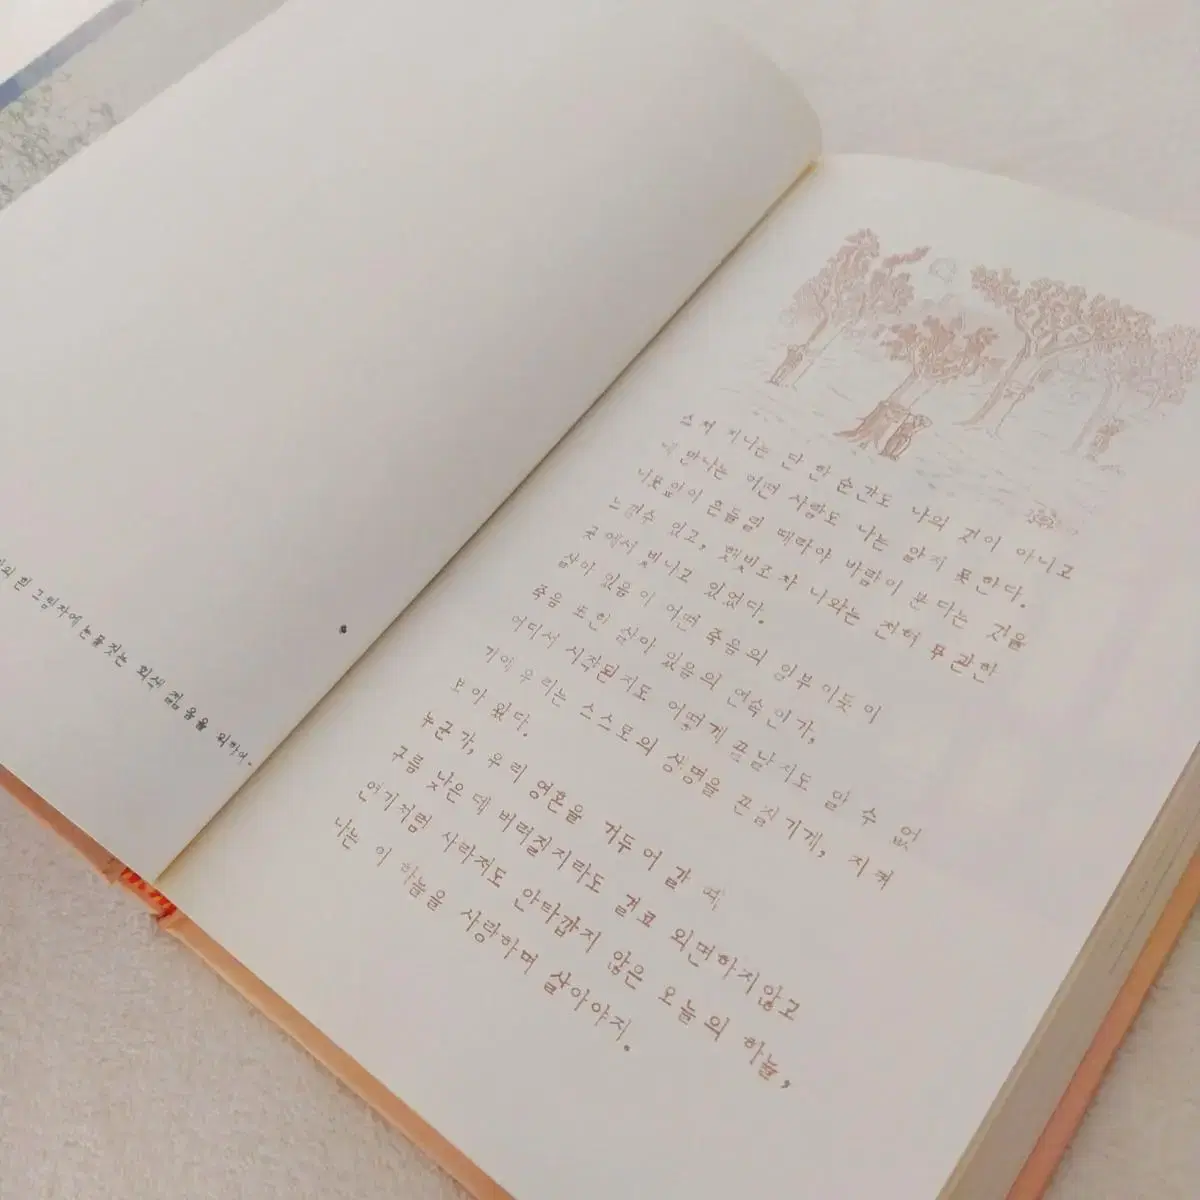 의 흰 그림자에 눈물짓는 회색 젊음을 위하여.
스쳐 지나는 단 한 순간도 나의 것이 아니고
내 만나는 어떤 사람도 나는 알지 못한다.
나뭇잎이 흔들릴 때라야 바람이 분다는 것을
느낄수 있고, 햇빛조차 나와는 전혀 무관한
곳에서 빛나고 있었다.
살아 있음이 어떤 죽음의 일부이듯이
죽음 또한 살아 있음의 연속인가,
어디서 시작된지도 어떻게 끝날지도 알 수 없
기에 우리는 스스로의 생명을 끈질기게, 지켜
보아 왔다.
누군가, 우리 영혼을 거두어 갈 때
구름 낮은 데 버려질지라도 결코 외면하지않고
연기처럼 사라져도 안타깝지 않은 오늘의 하늘,
나는 이 하늘을 사랑하며 살아야지.